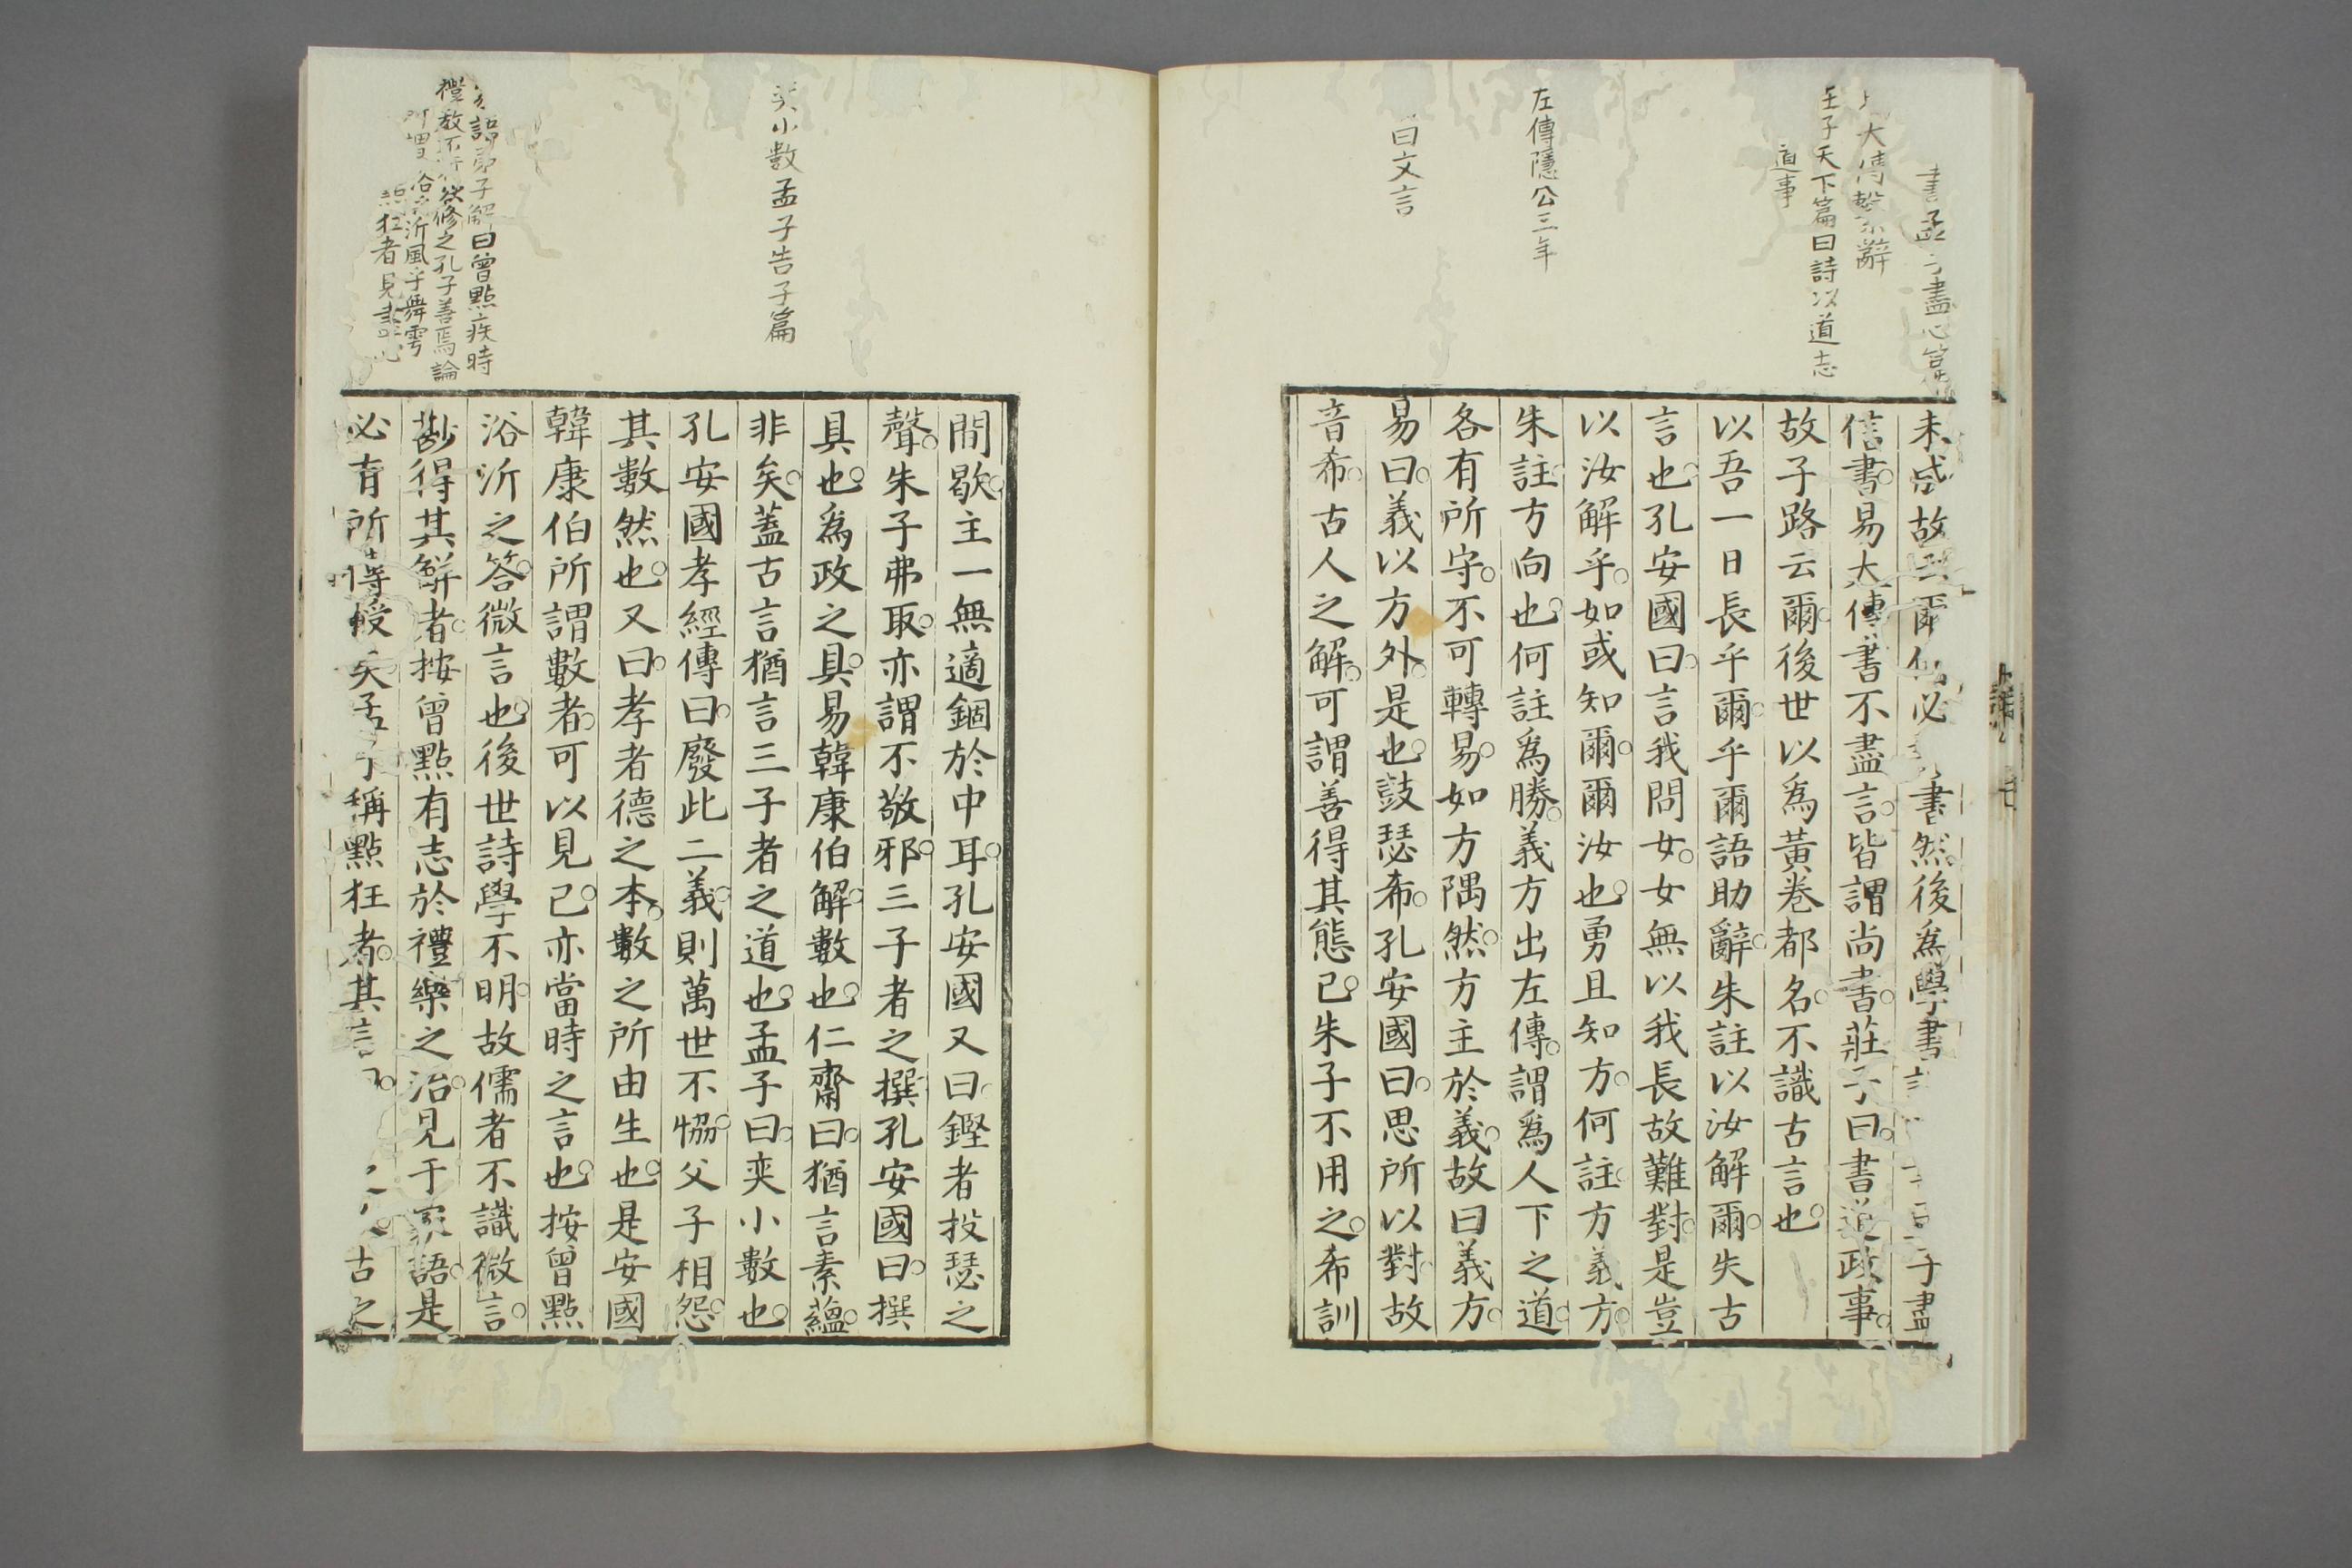 書孟子盡心篇
大傳繫辭
子天下篇曰詩以道志
道事
左傳隱公三年
曰文言
未成故云爾必書然後爲學書子盡
信書易大傳書不盡言皆謂尚書莊子曰書道政事
故子路云爾後世以爲黃卷都名不識古言也
以吾一日長乎爾乎爾語助辭朱註以汝解爾失古
言也孔安國曰言我問女女無以我長故難對是豈
以汝解乎如或知爾爾汝也勇且知方何註方義方
朱註方向也何註爲勝義方出左傳謂爲人下之道
各有所守不可轉易如方隅然方主於義故曰義方
易曰義以方外是也鼓瑟希孔安國曰思所以對故
音希古人之解可謂善得其態已朱子不用之希訓
奕小數孟子告子篇
語弟子解曰曾點疾時
禮教不行欲修之孔子善焉論
所謂浴乎沂風乎舞雩
狂者見盡心
間歇主一無適錮於中耳孔安國又曰鏗者投瑟之
聲朱子弗取亦謂不敬邪三子者之撰孔安國曰撰
具也爲政之具易韓康伯解數也仁齋曰猶言素蘊
非矣蓋古言猶言三子者之道也孟子曰奕小數也
孔安國孝經傳曰廢此二義則萬世不恊父子相怨
其數然也又曰孝者德之本數之所由生也是安國
韓康伯所謂數者可以見已亦當時之言也按曾點
浴沂之答微言也後世詩學不明故儒者不識微言
尠得其解者按曾點有志於禮樂之治見于家語是
必有所傳授矣孟子稱點狂者其言曰古之